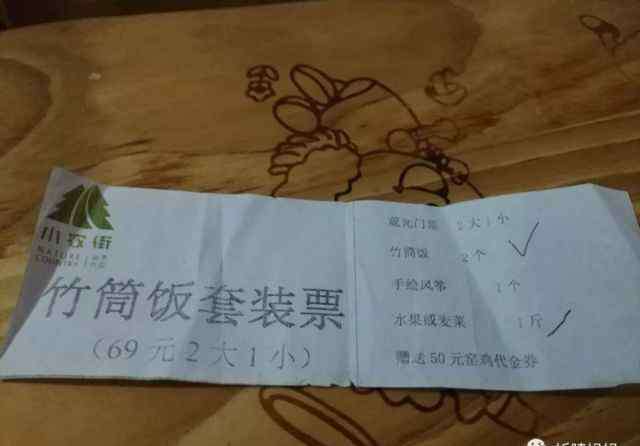 小农街
NATURE
COUNTRY
竹筒饭套装票
（69元2大1小）
观光门票 2大1小
竹筒饭 2个
手绘风筝 1个
水果或麦菜 1斤
赠送50元窑鸡代金券